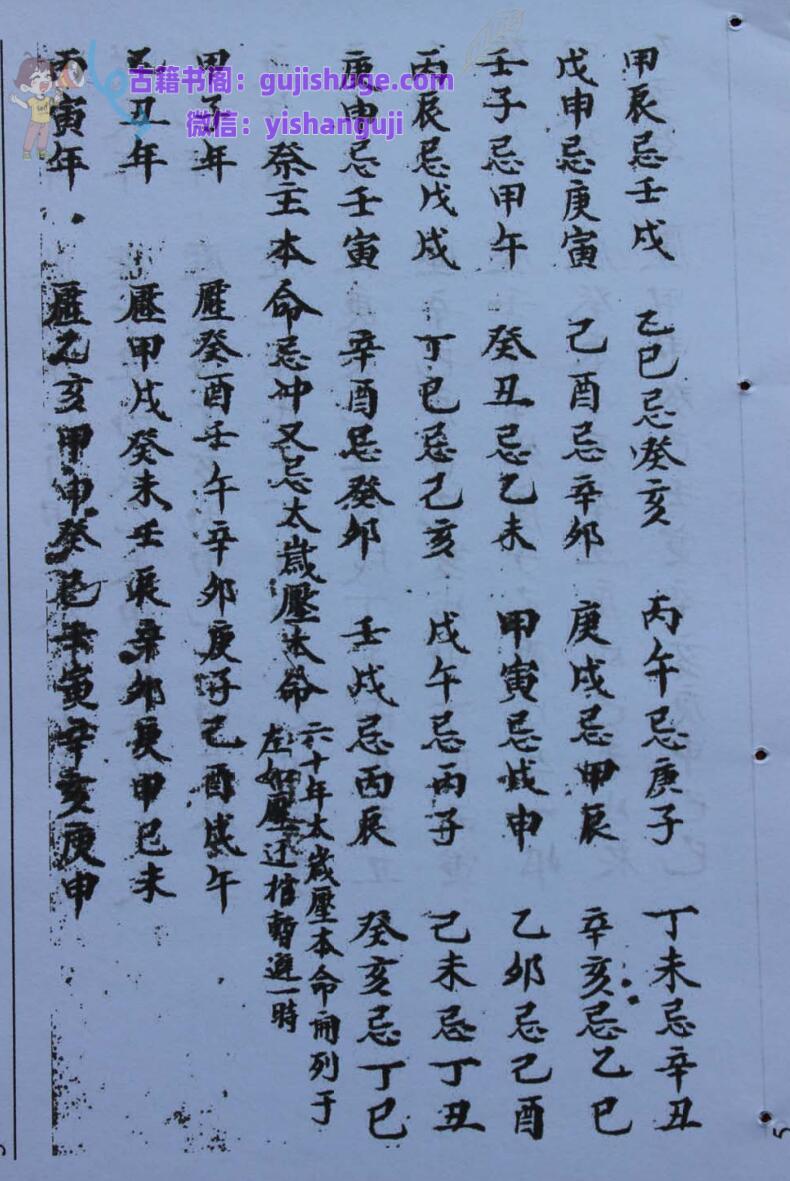 古籍书阁：gujishuge.com
微信：yishanguji
甲辰忌壬戌 乙巳忌癸亥 丙午忌庚子 丁未忌辛丑
戊申忌庚寅 己酉忌辛卯 庚戌忌甲辰 辛亥忌乙巳
壬子忌甲午 癸丑忌乙未 甲寅忌戊申 乙卯忌己酉
丙辰忌戊戌 丁巳忌己亥 戊午忌丙子 己未忌丁丑
庚申忌壬寅 辛酉忌癸卯 壬戌忌丙辰 癸亥忌丁巳
祭主本命忌冲又忌太歲壓本命
六十年太歲壓本命開列于
左如壓迁棺暫避一時
甲子年 壓癸酉壬午辛卯庚子己酉戊午
乙丑年 壓甲戌癸未壬辰辛卯庚申己未
丙寅年 壓乙亥甲申癸巳壬寅辛亥庚申
5